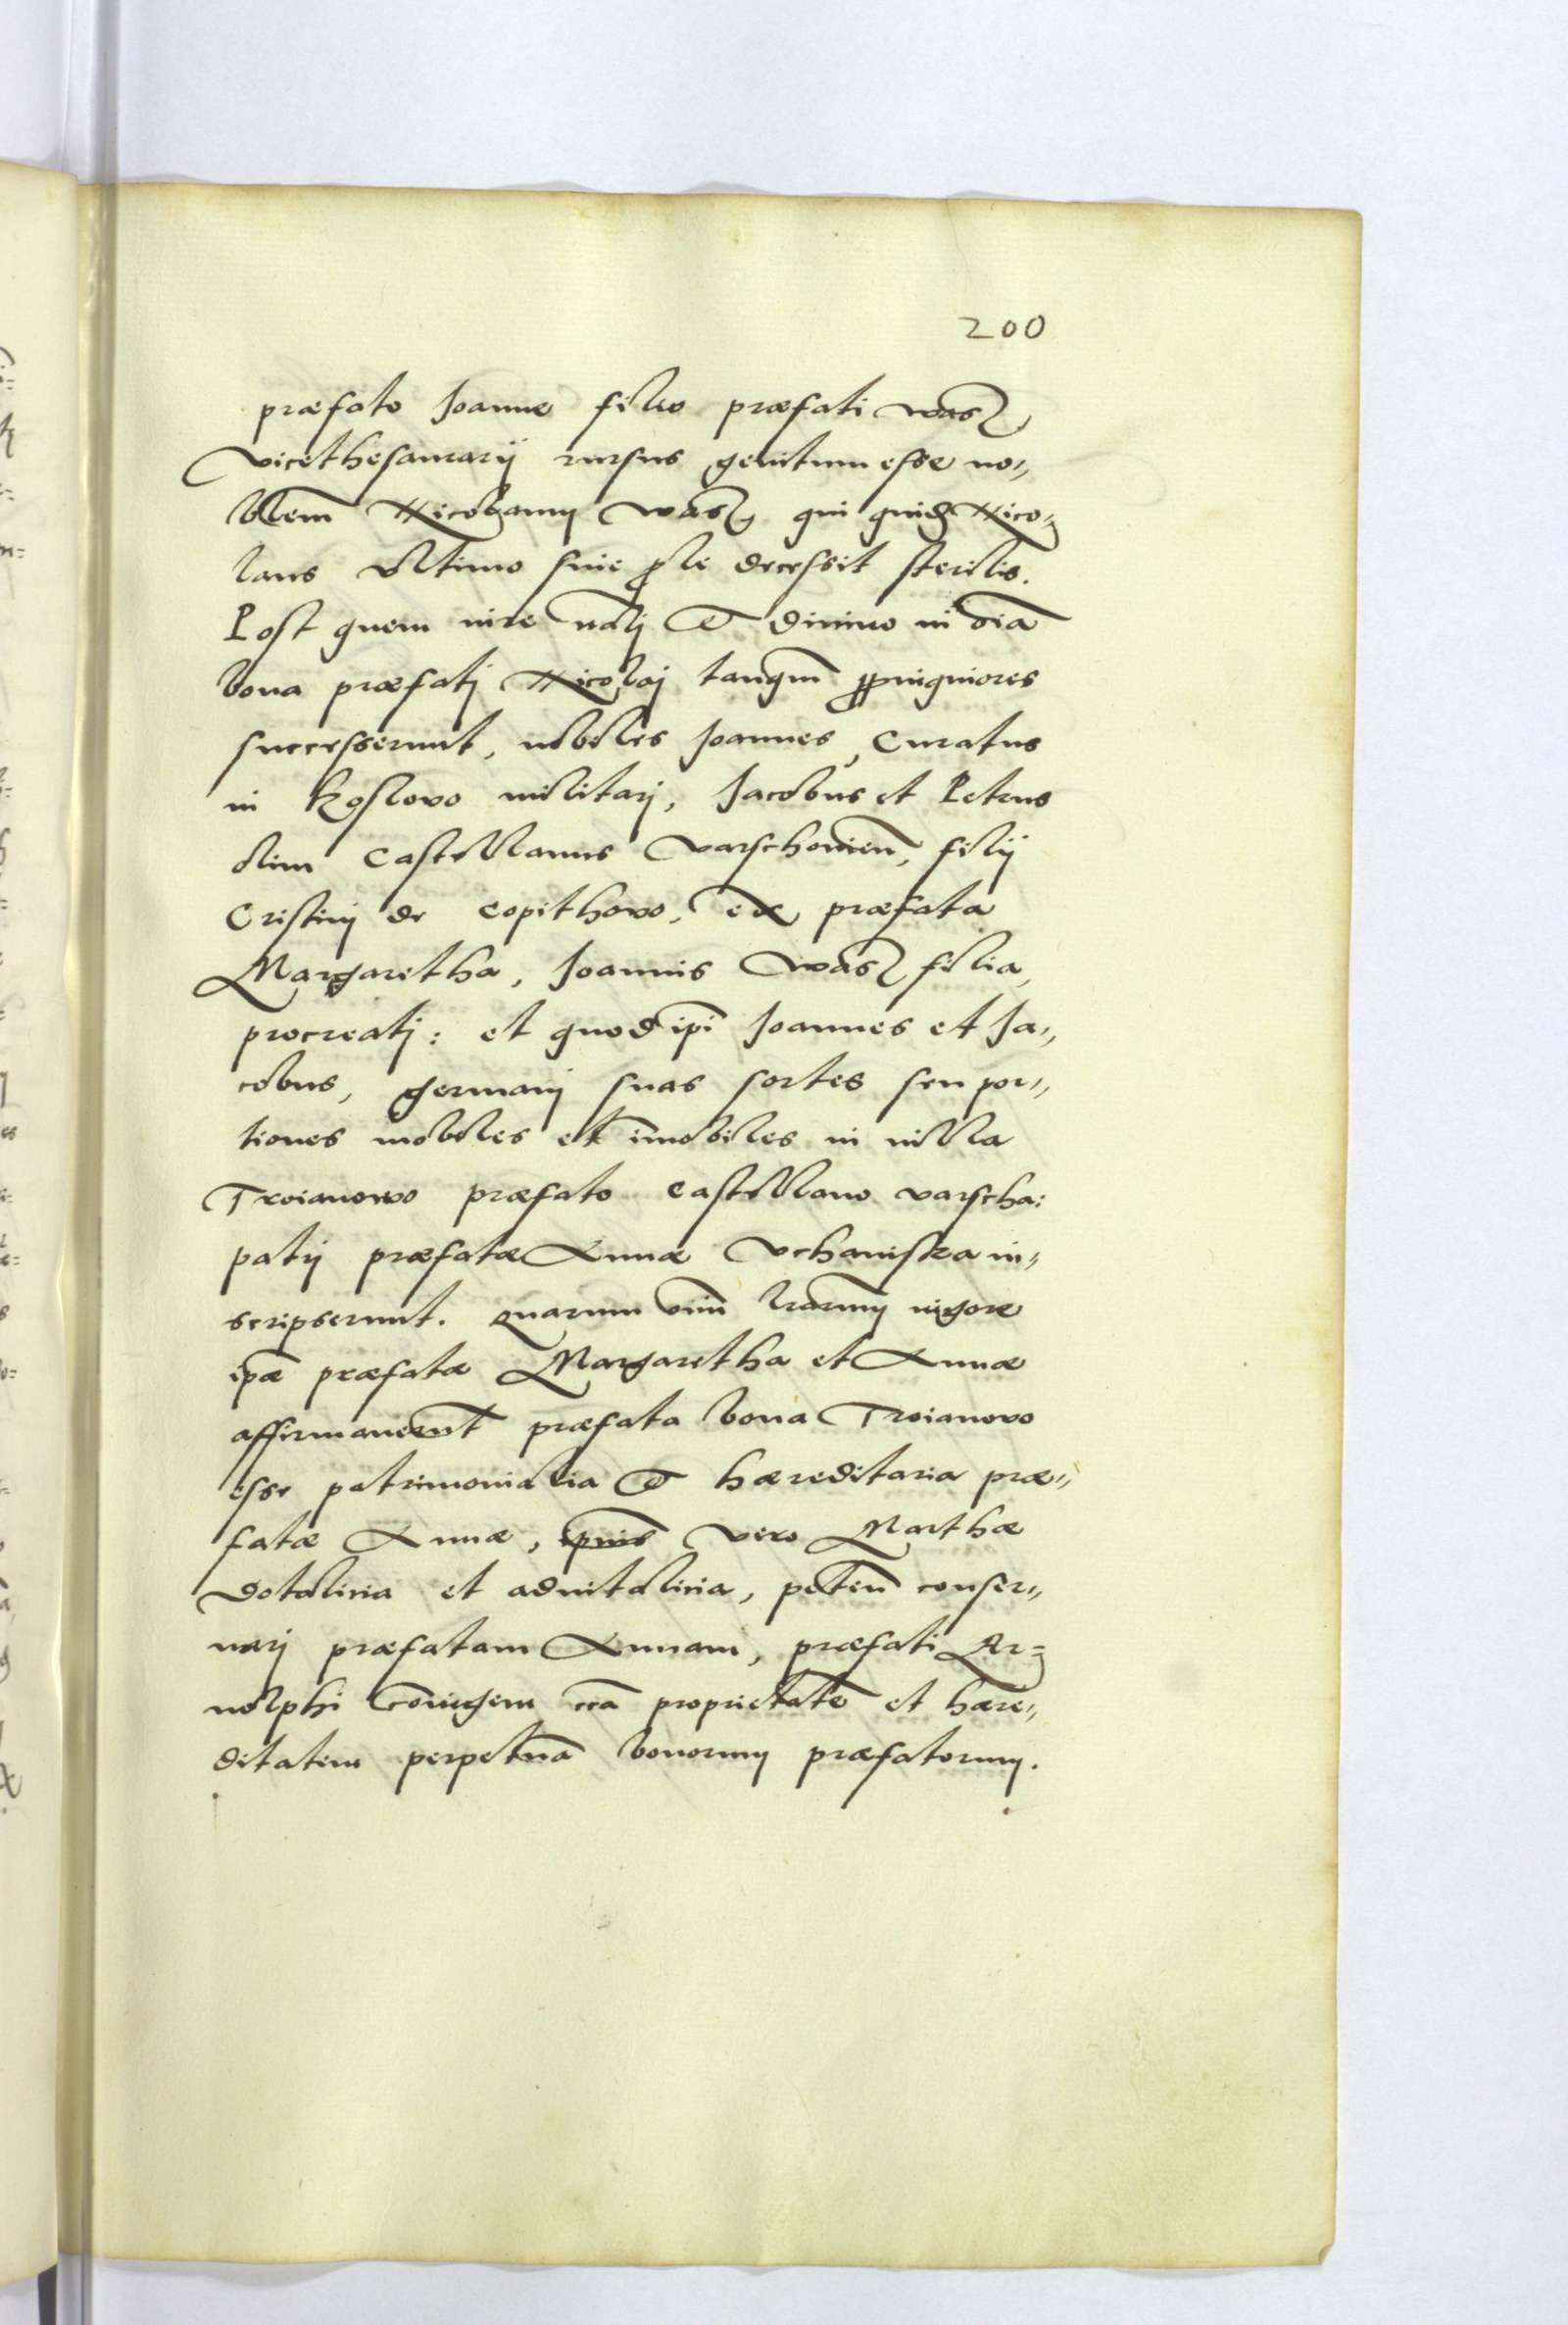 200
præfato Joanne filio præfati Wasz,
Vicethesaurarij rursus genitum esse no„
bilem Nicolaum Wasz, qui quidẽ Nico„
laus Vltimo sine ꝓle decessit sterilis.
Post quem iure nãlj et diuino in oĩa
bona præfatj Nicolaj tanq̃m ꝓpinquiores
successerunt, nobiles Joannes, Curatus
in Koslovo militarj, Jacobus et Petrus
olim Castellanus Varschouieñ, filij
Cristinj de Copithovo, ex præfata
Margaretha, Joannis Wasz filia,
procreatj: et quod ip̃i Joannes et Ja„
cobus, germanj suas sortes seu por„
tiones mobiles et im̃obiles in uilla
Troianowo præfato Castellano Varscha:
patrj præfatæ Annæ Vchaniska in„
scripserunt. Quarum om̃iũ lr̃arum uigore
ip̃æ præfatæ Margaretha et Annæ
affirmauerũt præfata bona Troianovo
esse patrimonialia et hæreditaria præ„
fatæ Annæ, ip̃ius vero Marthæ
Dotalicia et aduitalicia, peteñ conser„
uarj præfatam Annam, præfati Ar„
nolphi cõiugem cc̃a proprietatẽ et hære„
ditatem perpetuã bonorum præfatorum.